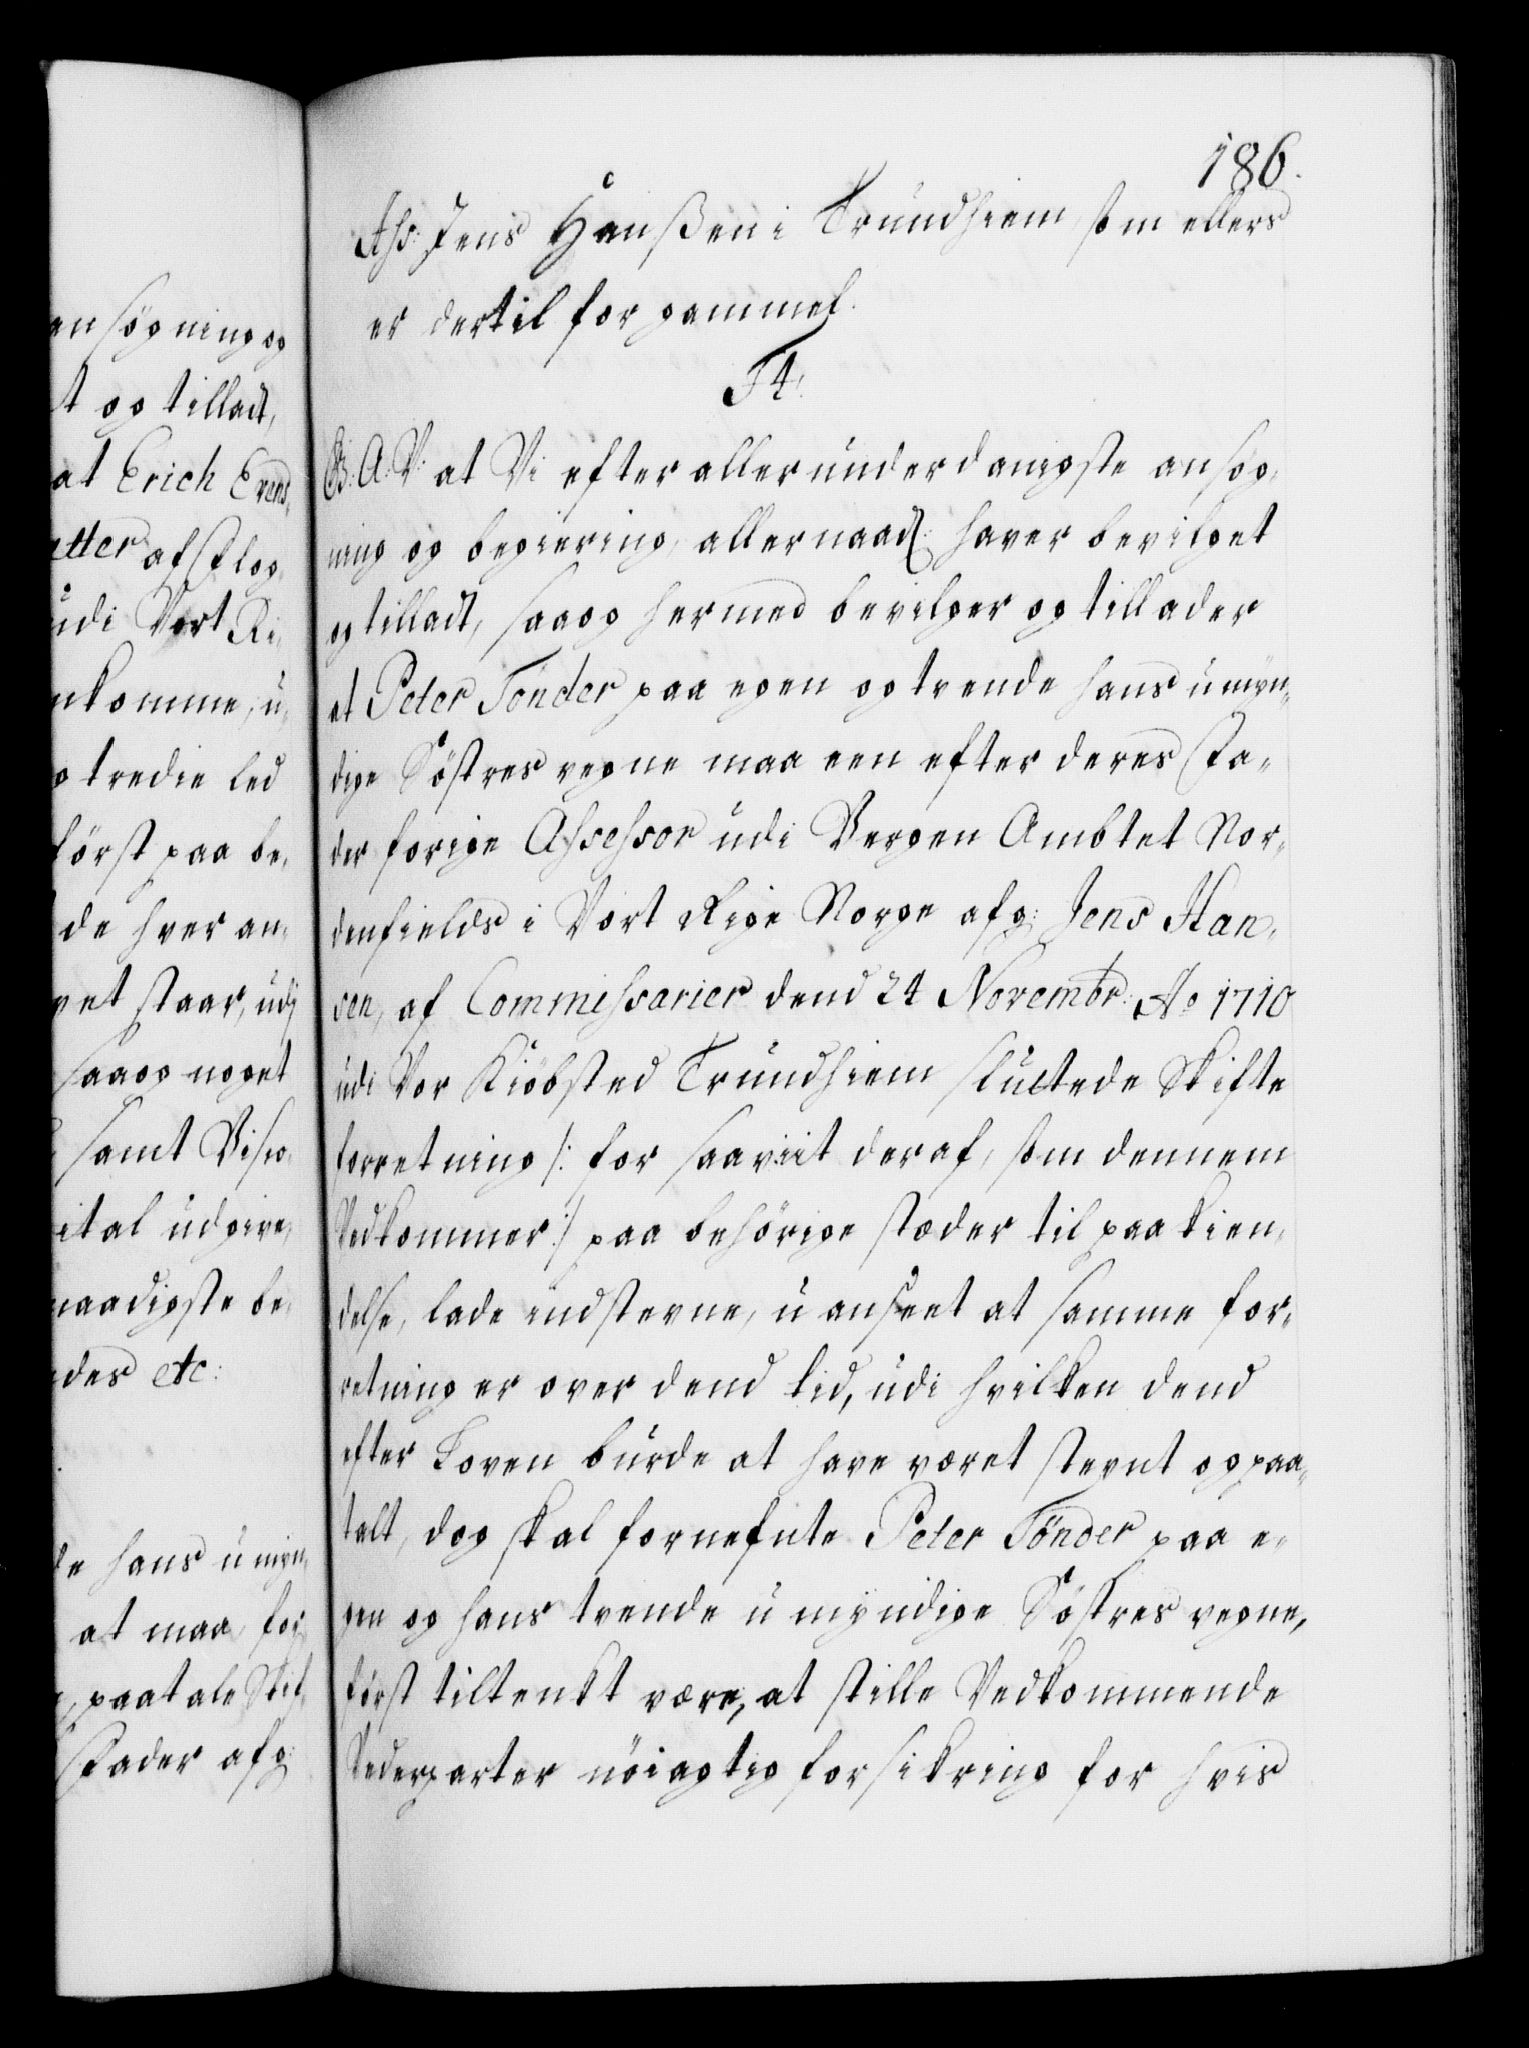 186.
Ass: Jens Hanßen i Trundhiem som ellers
er dertil for gammel.
F 4.
G. A. V. at Vi efter allerunderdanigste ansøg-
ning og begiering, allernaad: haver bevilget
og tilladt, saa og hermed bevilger og tillader
at Peter Tönder paa egen og trende hans umyn-
dige Söstres vegne maa een efter deres Fa-
der forige Assessor udi Bergen Ambtet Nor-
denfields i Vort Rige Norge afg: Jens Han-
sen, af Commissarier dend 24 Novembr: Ao 1710
udi Vor Kiöbsted Trundhiem sluttede Skifte
forretning /: for saaviit deraf, som dennem
Vedkommer :/ paa behörige stæder til paakien-
delse, lade indstevne, uanseet at samme for-
retning er over dend tid, udi hvilken dend
efter Loven burde at have været stevnt og paa-
talt, dog skal fornefnte Peter Tönder paa e-
gen og hans trende umyndige Söstres vegne,
först tiltenkt være, at stille Vedkommende
Vederparter nöiagtig forsikring for hvis
ansögning og
t og tilladt,
at Erich Evens-
etter af Flog-
udi Vort Ri-
nkomme, u-
g tredie led
först paa be-
de hver an-
vet staar, udj
saa og noget
samt Visso-
ital udgive,
naadigste be-
des etc:
de hans umyn-
at maa for
, paatale Skif-
Fader afg: